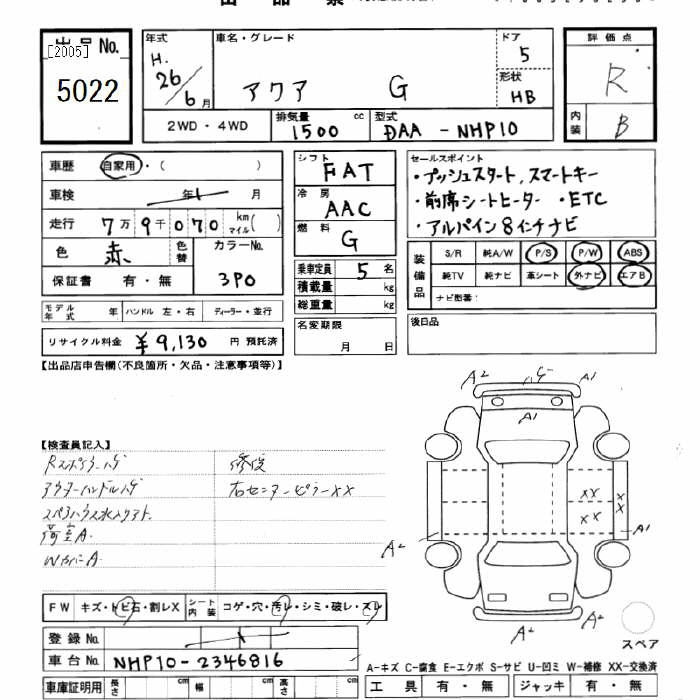 出品票
出品 No.
[2005]
5022
年式
H.
26/6月
車名・グレード
アクア G
ドア
5
形状
HB
評価点
R
内装
B
2WD・4WD
排気量 1500 cc
型式 DAA-NHP10
車歴 自家用・( )
車検 年 1 月
走行 7万9千070 km マイル( )
色 赤 色替 カラーNo. 3P0
保証書 有・無
モデル年式 年 ハンドル 左・右 ディーラー・並行
リサイクル料金 ¥9,130 円 預託済
シフト FAT
冷房 AAC
燃料 G
乗車定員 5 名
積載量 kg
総重量 kg
名変期限
月 日
セールスポイント
・プッシュスタート,スマートキー
・前席シートヒーター ・ETC
・アルパイン8インチナビ
装備品
S/R 純A/W P/S P/W ABS
純TV 純ナビ 革シート 外ナビ エアB
ナビ型番:
後日品
【出品店申告欄(不良箇所・欠品・注意事項等)】
【検査員記入】
Rスポイラーハゲ 修復
アウターハンドルハゲ 右センターピラーXX
荷室A.
A2 A1
A1
XX XX
XX X X
A2 A1
A2 A2
FW キズ・トビ石・割レX シート内装 コゲ・穴・汚レ・シミ・破レ・スレ
登録 No.
車台 No. NHP10-2346816
車庫証明用 長さ cm 幅 cm 高さ cm
スペア
A-キズ C-腐食 E-エクボ S-サビ U-凹ミ W-補修 XX-交換済
工具 有・無 ジャッキ 有・無